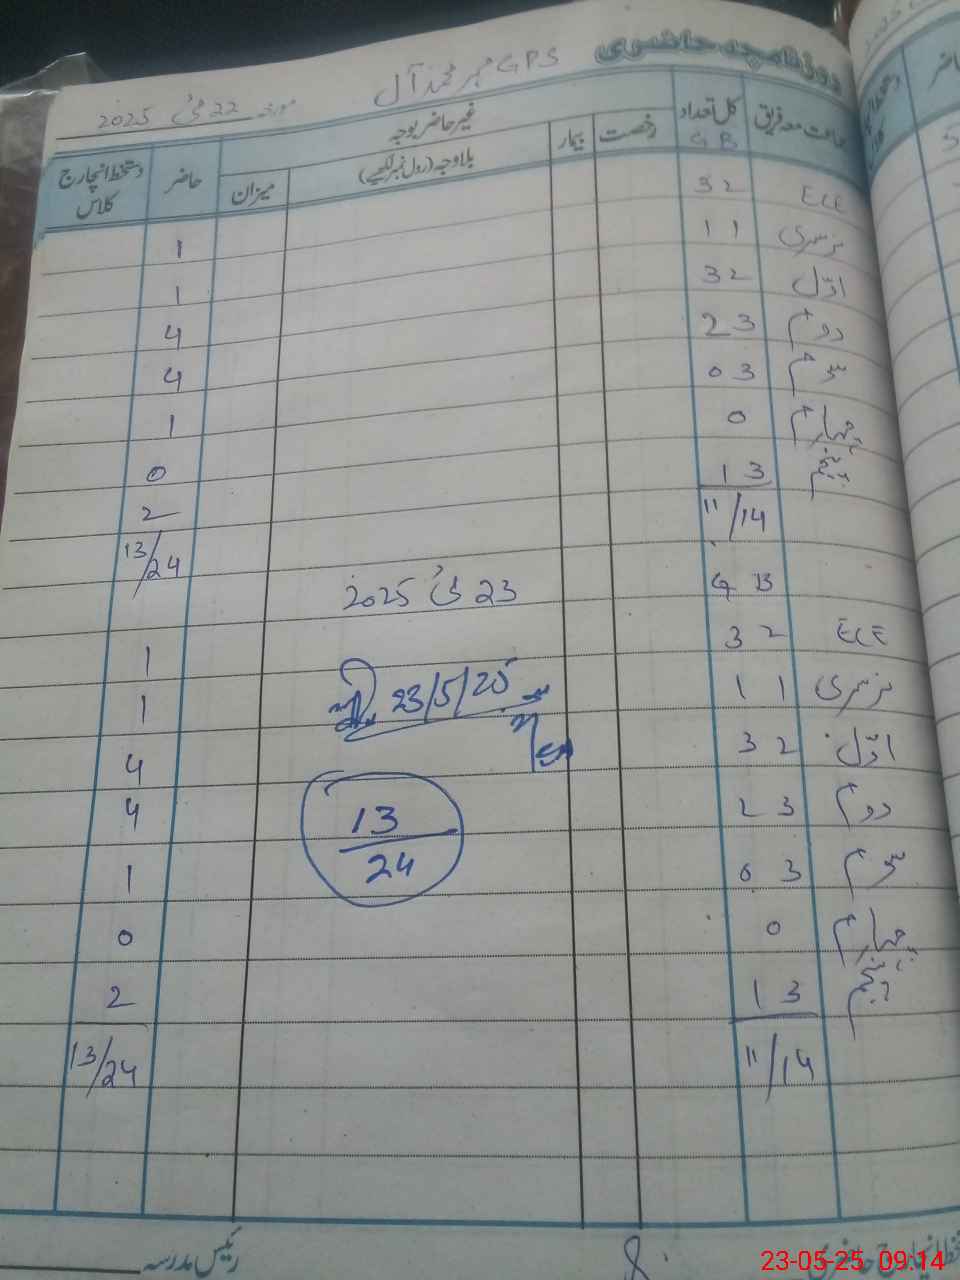 روزنامچہ حاضری
GPS مہر محمد آل
مورخہ 22 مئی 2025
جماعت معہ فریق
کل تعداد
G B
غیر حاضر بوجہ
رخصت
بیمار
بلاوجہ (رول نمبر لکھیے)
میزان
حاضر
دستخط انچارج کلاس
ECE 3 2 1
نرسری 1 1 1
اوّل 3 2 4
دوم 2 3 4
سوم 0 3 1
چہارم 0 0
پنجم 1 3 2
11/14 13/24
23 مئی 2025
G B
ECE 3 2 1
نرسری 1 1 1
اوّل 3 2 4
دوم 2 3 4
سوم 0 3 1
چہارم 0 0
پنجم 1 3 2
11/14 13/24
23/5/25
13
24
رئیس مدرسہ
8
23-05-25 09:14